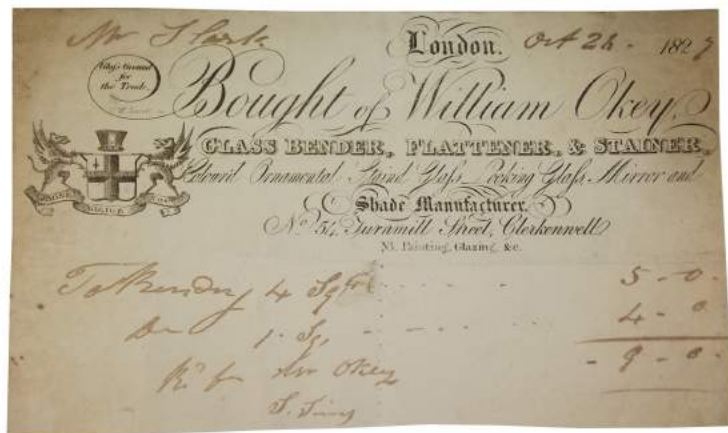 Mr
London. Oct 1827
Glass Ground
for
the Trade.
Bought of William Okey,
GLASS BENDER, FLATTENER, & STAINER,
Colourd Ornamental Staind Glass, Looking Glass, Mirror and
Shade Manufacturer.
DOMINE DIRIGE NOS
No. 54, Turnmill Street, Clerkenwell
NB. Painting, Glazing, &c.
To Bending 4 5 - 0
Do 1 Sq, 4 - 0
- 9 - 0
Okey